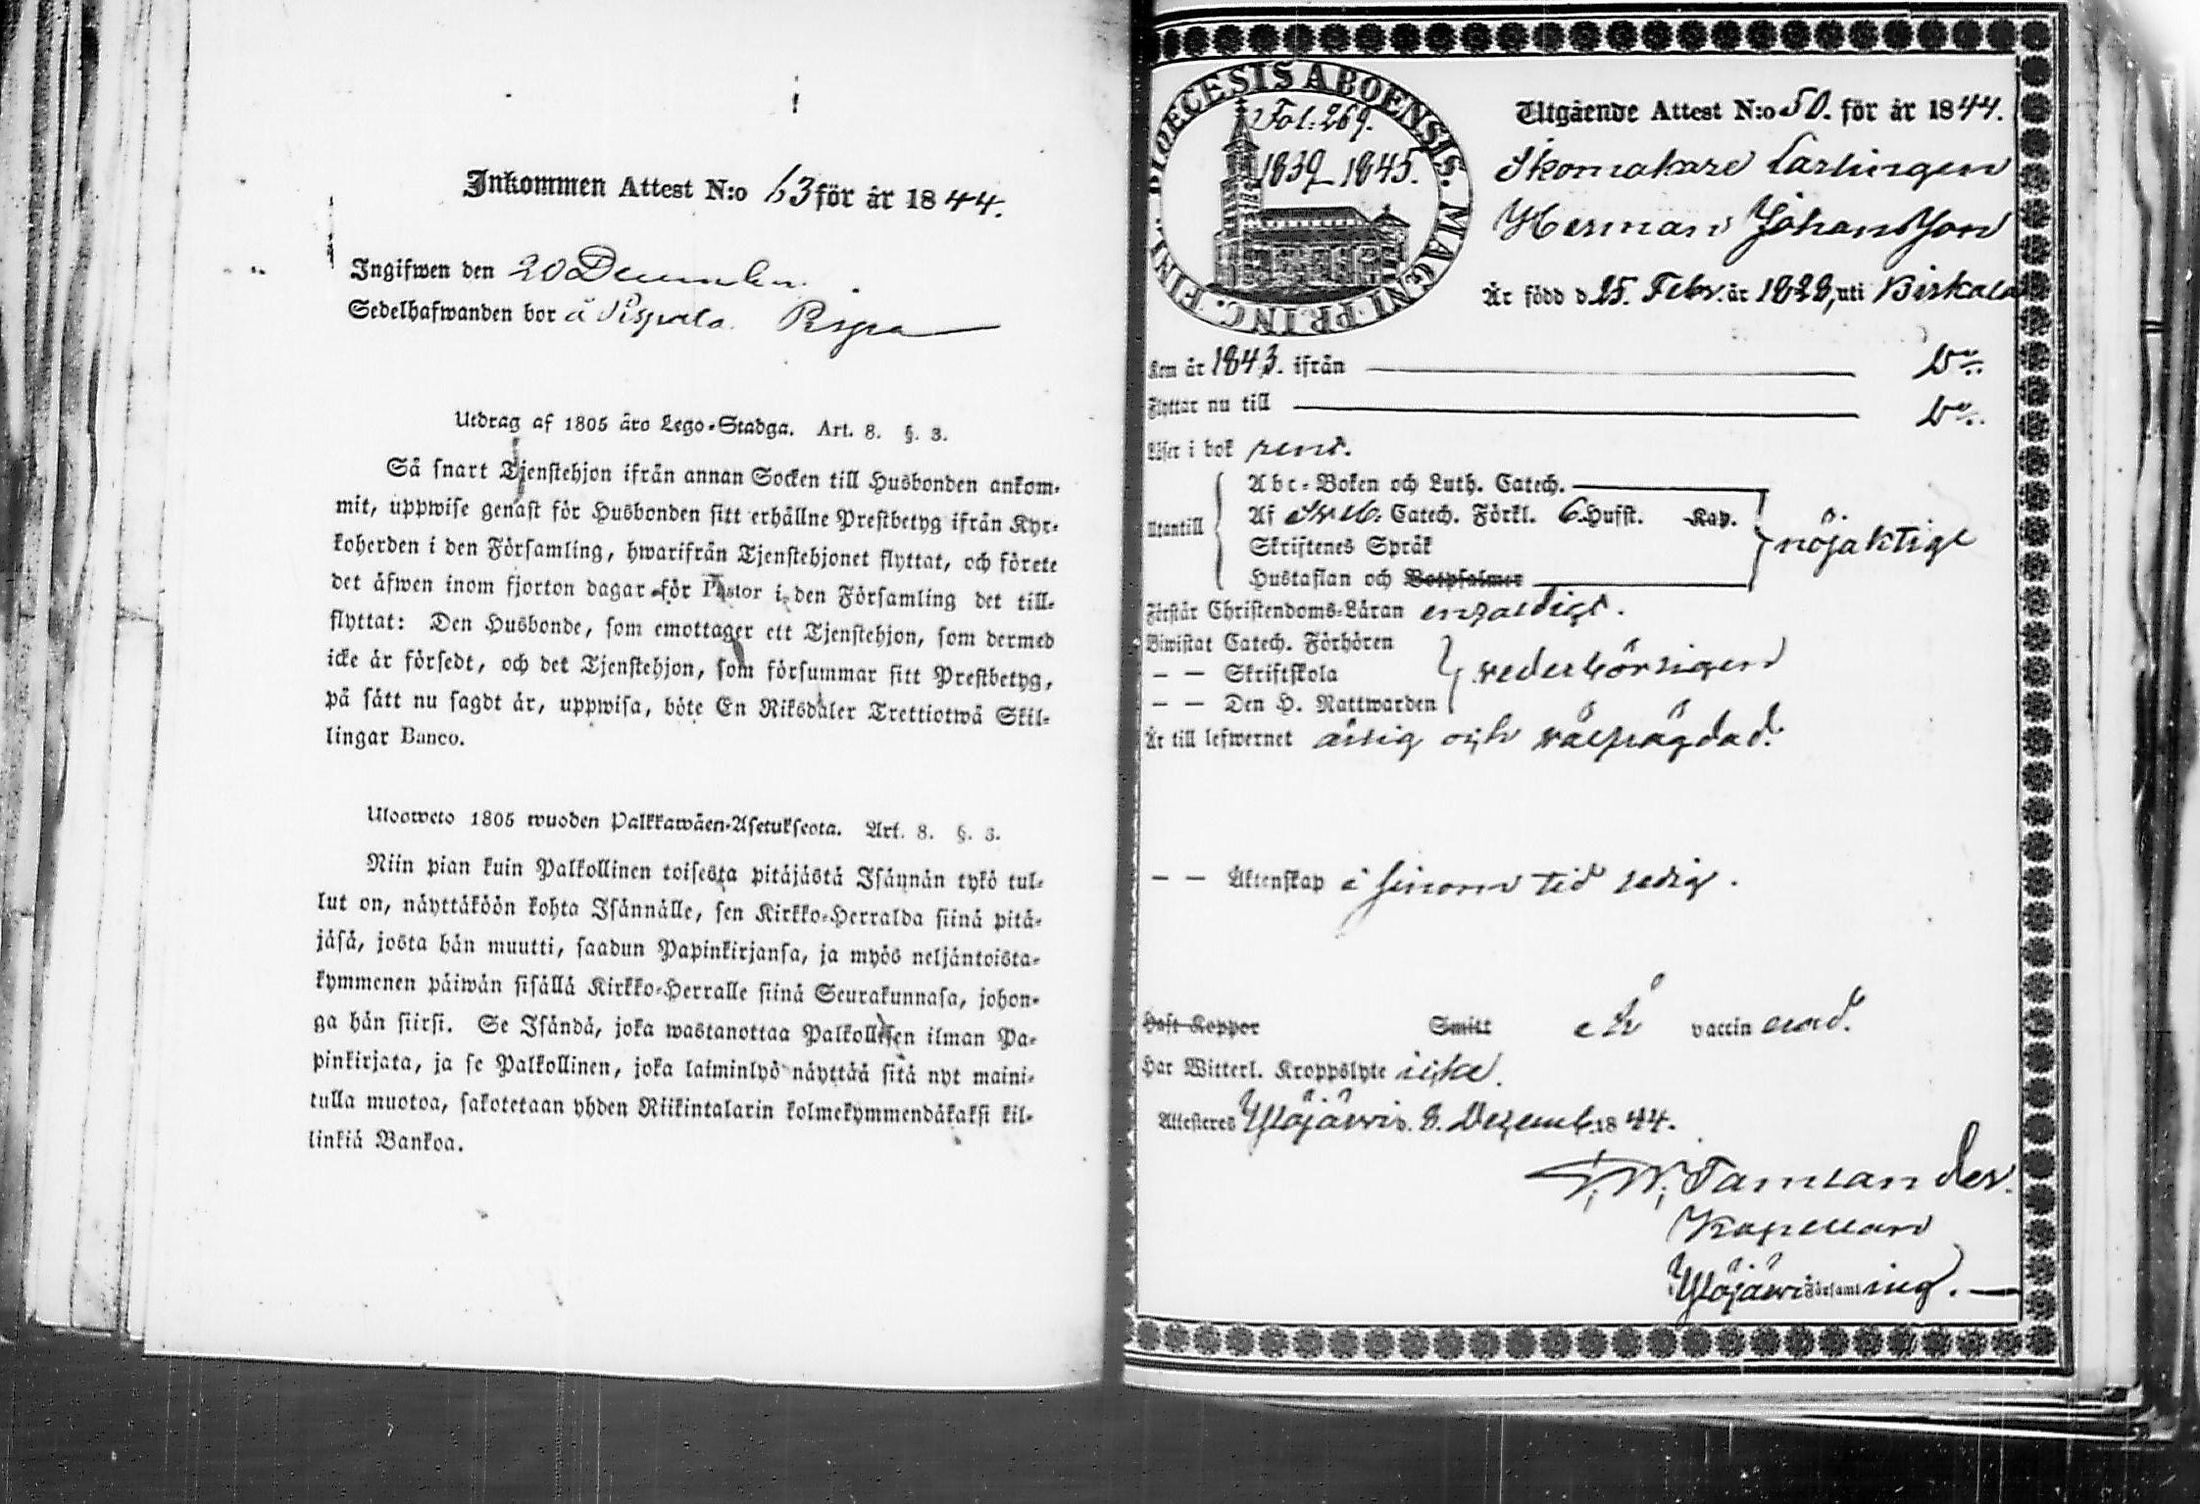 Inkommen Attest N:o 63 för år 1844.
Ingifwen den 20 December.
Sedelhafwanden bor å Pispala.
Utdrag af 1805 års Lego-Stadga. Art. 8. §. 3.
Så snart Tjenstehjon ifrån annan Socken till Husbonden ankom-
mit, uppwise genast för Husbonden sitt erhållne Prestbetyg ifrån Kyr-
koherden i den Församling, hwarifrån Tjenstehjonet flyttat, och förete
det äfwen inom fjorton dagar för Pastor i den Församling det till-
flyttat: Den Husbonde, som emottager ett Tjenstehjon, som dermed
icke är försedt, och det Tjenstehjon, som försummar sitt Prestbetyg,
på sätt nu sagdt är, uppwisa, böte En Riksdaler Trettiotwå Skil-
lingar Banco.
Ulosweto 1805 wuoden Palkkawäen-Asetuksesta. Art. 8. §. 3.
Niin pian kuin Palkollinen toisesta pitäjästä Isännän tykö tul-
lut on, näyttäköön kohta Isännälle, sen Kirkko-Herralda siinä pitä-
jäsä, josta hän muutti, saadun Papinkirjansa, ja myös neljäntoista-
kymmenen päiwän sisällä Kirkko-Herralle siinä Seurakunnasa, johon-
ga hän siirsi. Se Isändä, joka wastanottaa Palkollisen ilman Pa-
pinkirjata, ja se Palkollinen, joka laiminlyö näyttää sitä nyt maini-
tulla muotoa, sakotetaan yhden Riikintalarin kolmekymmendäkaksi kil-
linkiä Bankoa.
DIOECESIS ABOENSIS. MAGNI PRINC. FINL.
Fol: 269.
1839–1845.
Utgående Attest N:o 50. för år 1844.
Skomakare Lärlingen
Herman Johansson
Är född d. 25. Febr. år 1828, uti Birkala
Kom år 1843. ifrån D:o.
Flyttar nu till D:o.
Läser i bok rent.
Utantill
Abc-Boken och Luth. Catech.
Af Sveb. Catech. Förkl. 6. Hufst. Kap.
Skriftenes Språk
Hustaflan och Botpsalmer
nöjaktigt
Förstår Christendoms-Läran enfaldigt.
Biwistat Catech. Förhören
— — Skriftskola
— — Den H. Nattwarden
vederbörligen
Är till lefwernet ärlig och välfrägdad.
— — Äktenskap i sinom tid ledig.
Haft Koppor Smitt är vaccinerad.
Har Witterl. Kroppslyte icke.
Attesteres Ylöjärvi d. 8. Decemb. 1844.
Kapellan
Ylöjärvi Församling.